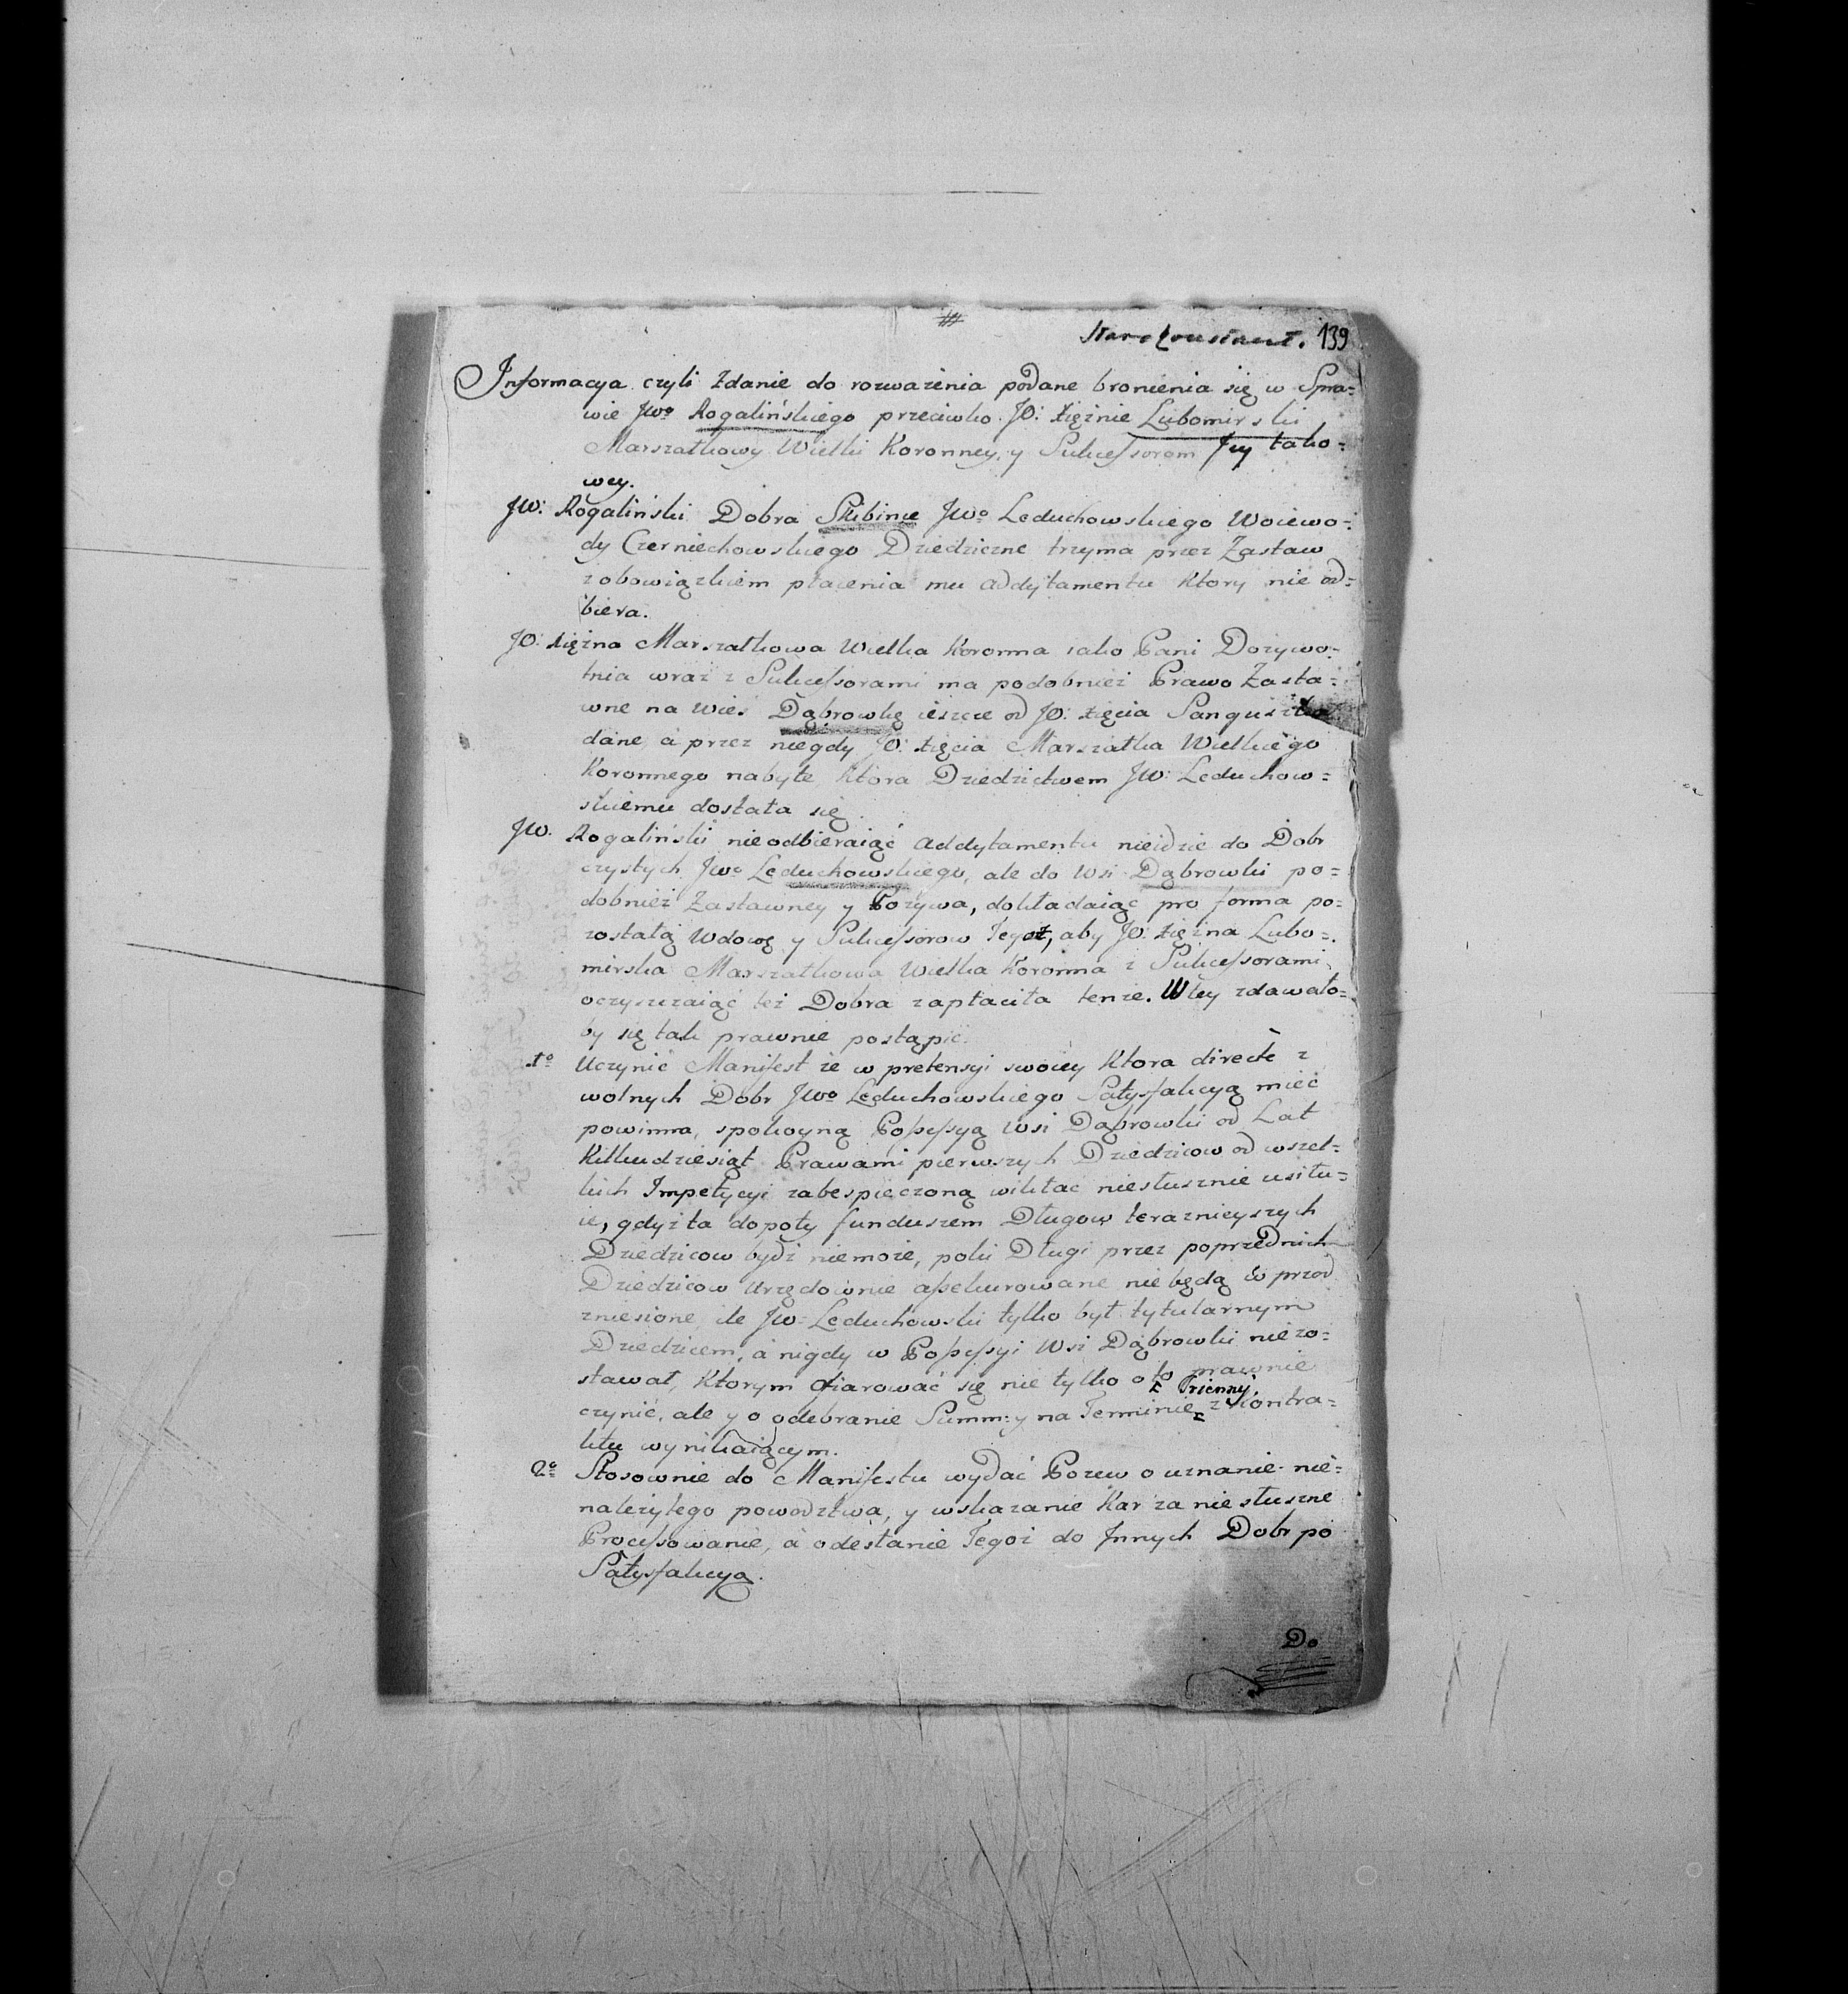 Staro Constant. 139
Informacya czyli zdanie do rozważenia podane bronienia się w Spra=
wie JWo Rogalińskiego przeciwko JO: Xiężnie Lubomirski
Marszałkowy Wielki Koronney, y Sukcessorom Jey tako=
wey.
JW: Rogaliński Dobra Skibince JWo Leduchowskiego Woiewo=
dy Czerniechowskiego Dziedziczne trzyma przez Zastaw
z obowiązkiem płacenia mu addytamentu ktory nie od=
biera.
JO: Xiężna Marszałkowa Wielka Koronna iako Pani Dożywo=
tnia wraz z Sukcessorami ma podobnież Prawo Zasta=
wne na Wieś Dąbrowkę ieszcze od JO: Xięcia Sanguszka
dane, a przez niegdy JO: Xięcia Marszałka Wielkiego
Koronnego nabyte ktora Dziedzictwem JW: Leduchow=
skiemu dostała się.
JW. Rogaliński nieodbieraiąc addytamentu nieidzie do Dobr
czystych JWo Leduchowskiego, ale do Wsi Dąbrowki po=
dobnież Zastawney y Pozywa, dokładaiąc pro forma po=
zostałą Wdowę y Sukcessorow Tegoż, aby JO: Xiężna Lubo=
mirska Marszałkowa Wielka Koronna z Sukcessorami
oczyszczaiąc też Dobra zapłaciła tenże. W tey zdawało=
by się tak prawnie postąpić.
1o Uczynić Manifest że w pretensyi swoiey ktora directe z
wolnych Dobr JWo Leduchowskiego Satysfakcyą mieć
powinna, spokoyną Possessyą Wsi Dąbrowki od Lat
Kilkudziesiąt Prawami pierwszych Dziedzicow od wszel=
kich Impetycyi zabespieczoną wikłać niesłusznie usiłu=
ie, gdyż ta dopoty funduszem Długow teraznieyszych
Dziedzicow bydź niemoże, poki Długi przez poprzednich
Dziedzicow Urzędownie assekurowane nie będą w przod
zniesione, ile JW: Leduchowski tylko był tytularnym
Dziedzicem, a nigdy w Possessyi Wsi Dąbrowki niezo=
stawał, Ktorym ofiarować się nie tylko o to prawnie
czynić, ale y o odebranie Summ: y na Terminie z Kontra=
ktu wynikaiącym.
2o Stosownie do Manifestu wydać Pozew o uznanie nie=
należytego powodztwa, y wskazanie Kar za niesłuszne
Processowanie, a odesłanie Tegoż do Innych Dobr po
Satysfakcyą.
Do